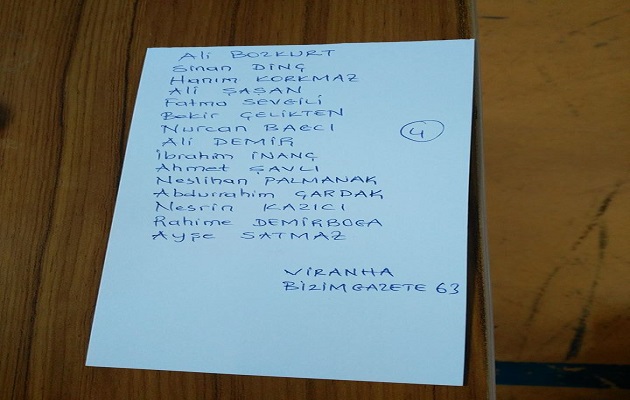 Ali BOZKURT
Sinan DİNÇ
Hanım KORKMAZ
Ali ŞAŞAN
Fatma SEVGİLİ
Bekir ÇELİKTEN
Nurcan BAECI
4
Ali DEMİR
İbrahim İNANÇ
Ahmet ŞAVLI
Neslihan PALMANAK
Abdurrahim ÇARDAK
Nesrin KAZICI
Rahime DEMİRBOGA
Ayşe SATMAZ
VİRANHA
BİZİMGAZETE 63